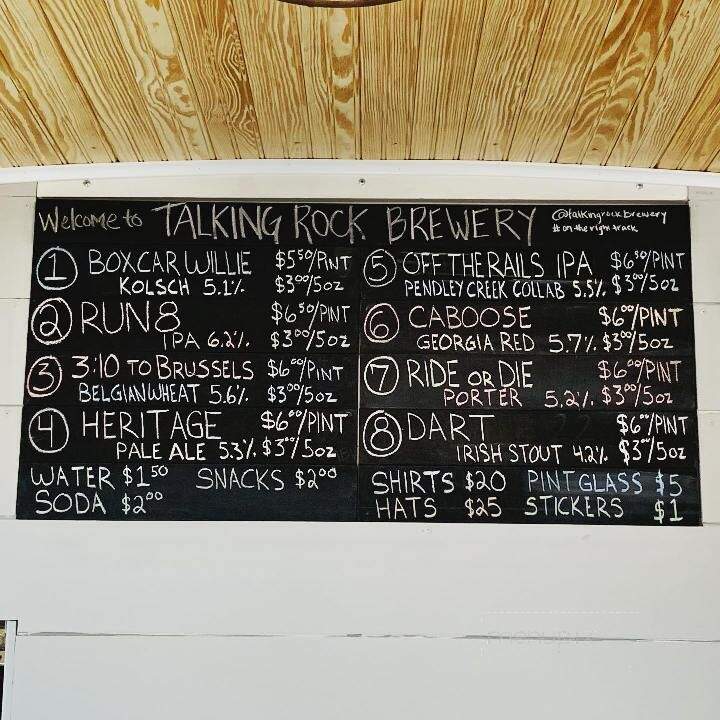 Welcome to TALKING ROCK BREWERY
@talkingrockbrewery
#ontherighttrack
1 BOXCAR WILLIE $5⁵⁰/PINT
KOLSCH 5.1% $3⁰⁰/5oz
2 RUN 8 $6⁵⁰/PINT
IPA 6.2% $3⁰⁰/5oz
3 3:10 TO BRUSSELS $6⁰⁰/PINT
BELGIAN WHEAT 5.6% $3⁰⁰/5oz
4 HERITAGE $6⁰⁰/PINT
PALE ALE 5.3% $3⁰⁰/5oz
WATER $1⁵⁰ SNACKS $2⁰⁰
SODA $2⁰⁰
5 OFF THE RAILS IPA $6⁵⁰/PINT
PENDLEY CREEK COLLAB 5.5% $3⁰⁰/5oz
6 CABOOSE $6⁰⁰/PINT
GEORGIA RED 5.7% $3⁰⁰/5oz
7 RIDE OR DIE $6⁰⁰/PINT
PORTER 5.2% $3⁰⁰/5oz
8 DART $6⁰⁰/PINT
IRISH STOUT 4.2% $3⁰⁰/5oz
SHIRTS $20 PINT GLASS $5
HATS $25 STICKERS $1